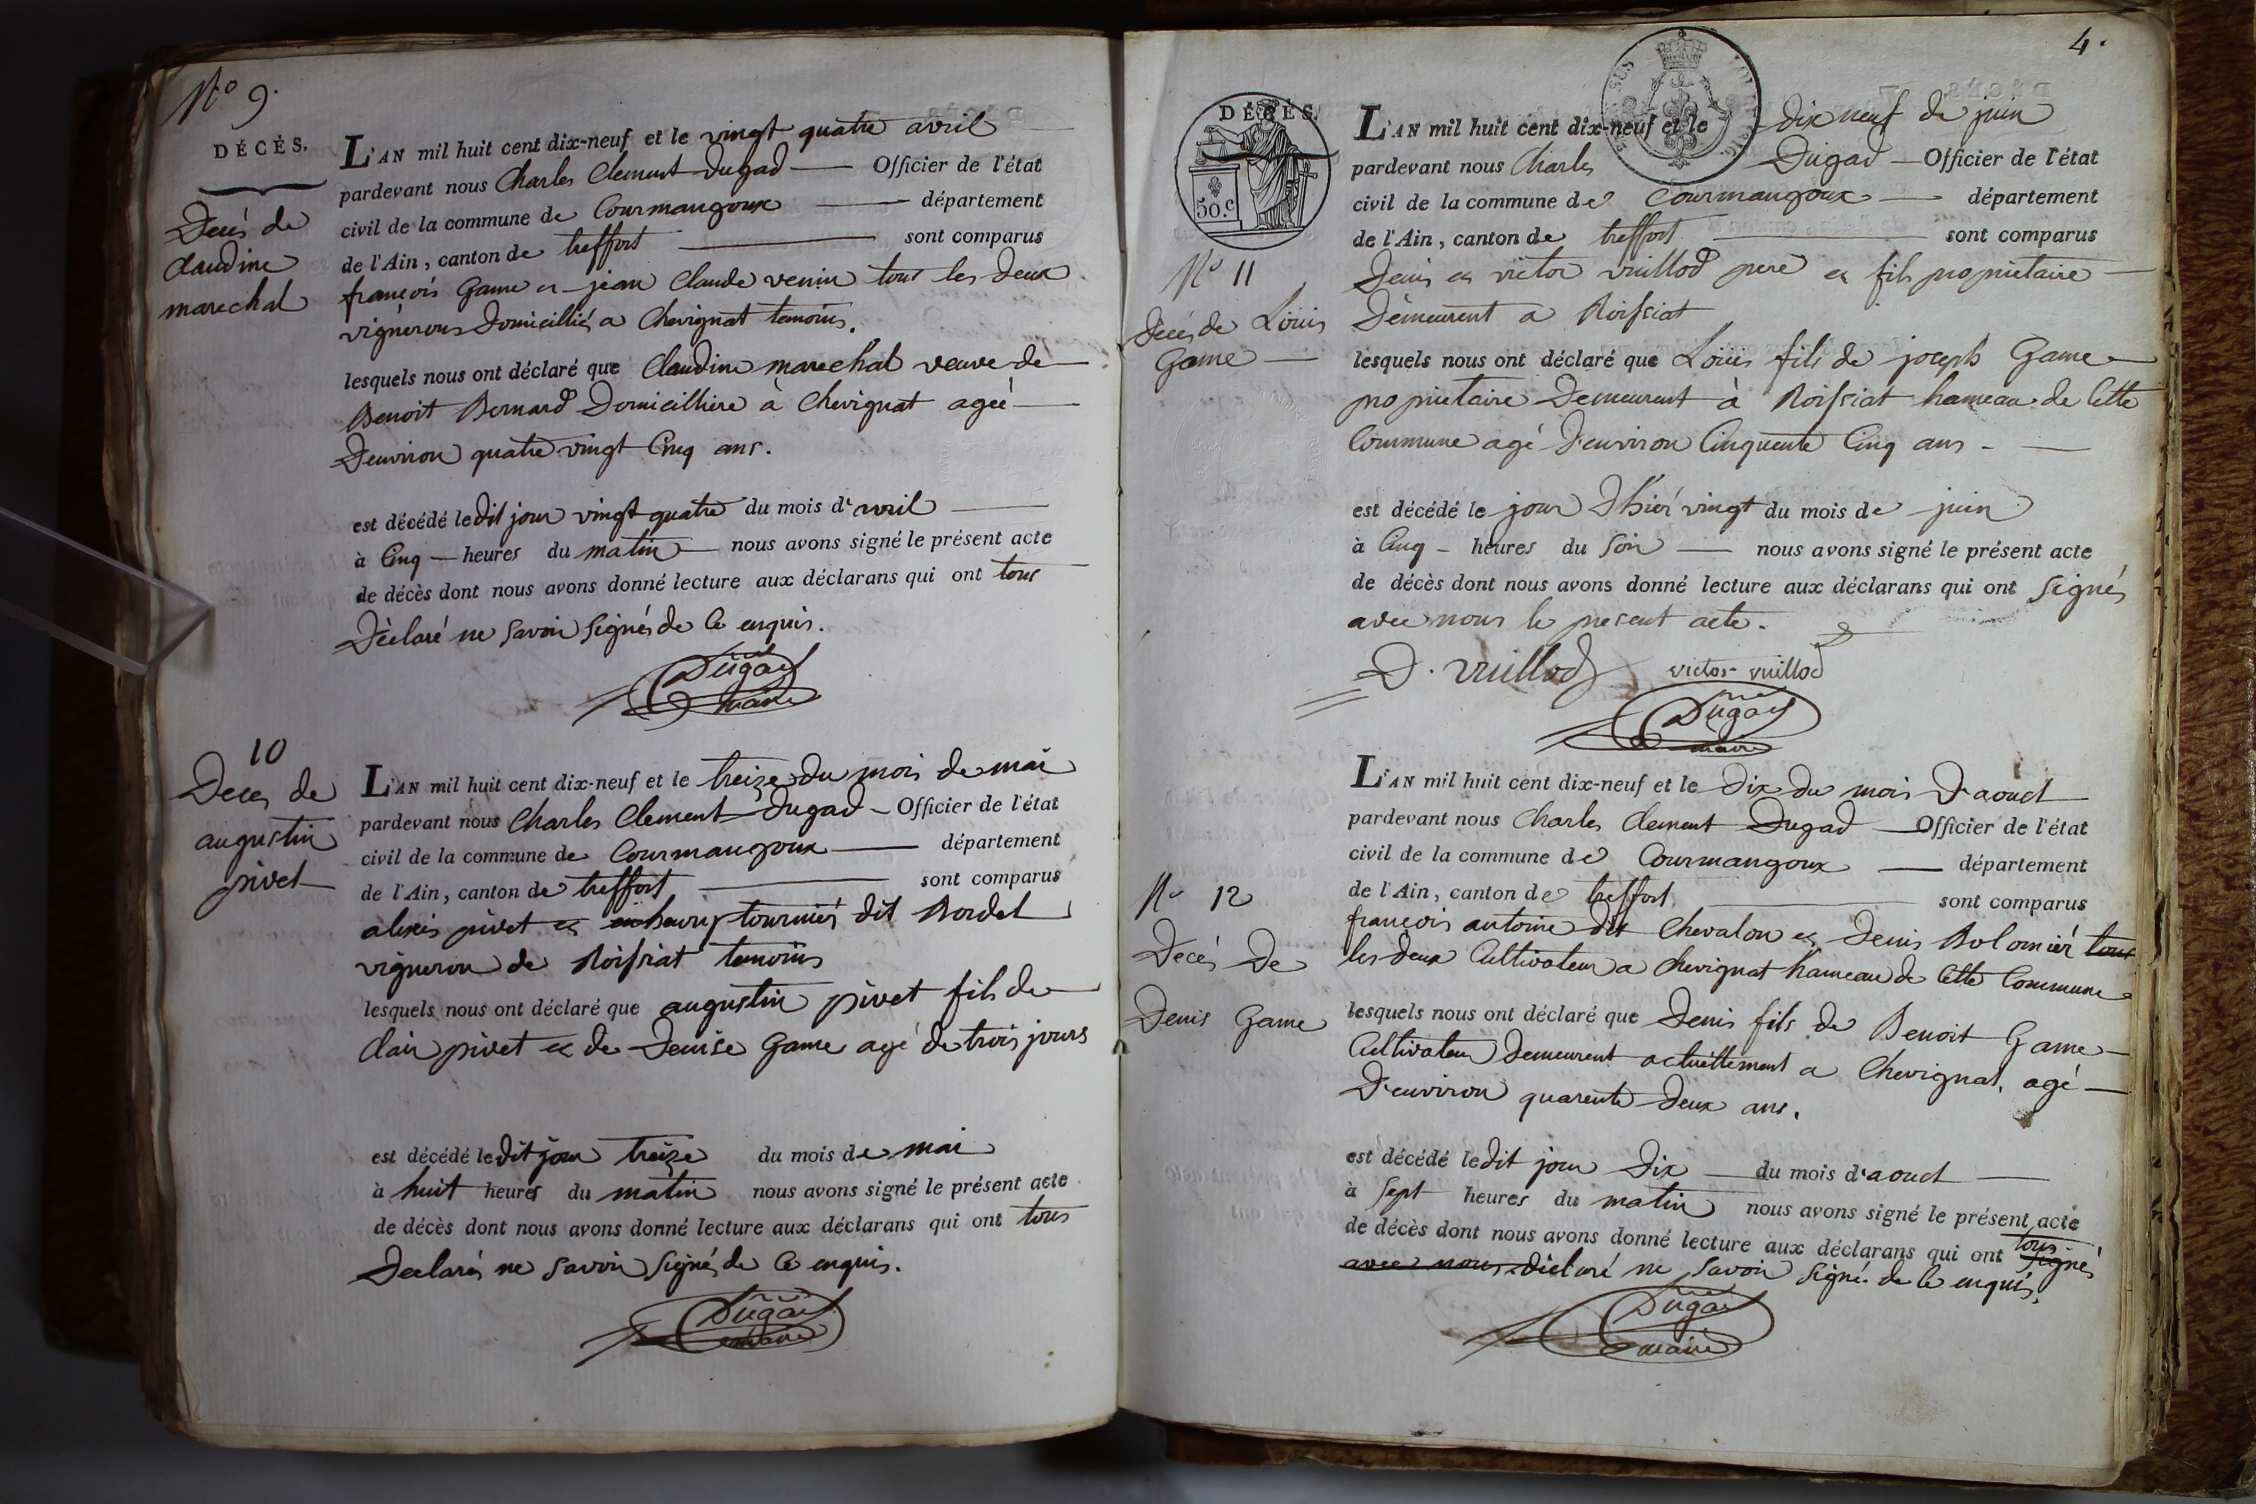 No 9.
DÉCÈS.
Decés de
claudine
marechal
L'AN mil huit cent dix-neuf et le vingt quatre avril
pardevant nous Charles Clement Dugad Officier de l'état
civil de la commune de Courmangoux département
de l'Ain, canton de treffort sont comparus
françois Game et jean Claude venin tous les deux
vignerons Domicilliés a Chevignat temoins.
lesquels nous ont déclaré que Claudine marechal veuve de
Benoit Bernard Domicilliere à Chevignat ageé
D'environ quatre vingt Cinq ans.
est décédé le dit jour vingt quatre du mois d'avril
à Cinq heures du matin nous avons signé le présent acte
de décès dont nous avons donné lecture aux déclarans qui ont tous
Déclaré ne Savoir Signés de Ce enquis.
Dugad
maire
10
Deces de
augustin
pivet
L'AN mil huit cent dix-neuf et le treize du mois de mai
pardevant nous Charles Clement Dugad Officier de l'état
civil de la commune de Courmangoux département
de l'Ain, canton de treffort sont comparus
alexis pivet et tournier dit Bordet
vigneron de Roissiat temoins
lesquels nous ont déclaré que augustin pivet fils de
clair pivet et de Denise Game agé de trois jours
est décédé le dit jour treize du mois de mai
à huit heures du matin nous avons signé le présent acte
de décès dont nous avons donné lecture aux déclarans qui ont tous
Declarés ne Savoir Signés de Ce enquis.
Dugad
maire
4.
DÉCÈS.
50.c
No 11
Decés de Louis
Game
L'AN mil huit cent dix-neuf et le dix neuf de juin
pardevant nous Charles Dugad Officier de l'état
civil de la commune de Courmangoux département
de l'Ain, canton de treffort sont comparus
Denis et victor vuillod pere et fils propriètaire
Demeurent a Roissiat
lesquels nous ont déclaré que Louis fils de joseph Game
propriètaire Demeurent à Roissiat hameau de Cette
Commune agé D'environ Cinquente Cinq ans
est décédé le jour D'hier vingt du mois de juin
à Cinq heures du Soir nous avons signé le présent acte
de décès dont nous avons donné lecture aux déclarans qui ont Signés
avec nous le present acte.
D. vuillod victor vuillod
Dugad
maire
No 12
Decés De
Denis Game
L'AN mil huit cent dix-neuf et le Dix du mois D'aouct
pardevant nous Charles Clement Dugad Officier de l'état
civil de la commune de Courmangoux département
de l'Ain, canton de treffort sont comparus
françois antoine dit Chevalon et Denis Bolomier tous
les deux Cultivateur a Chevignat hameau de Cette Commune
lesquels nous ont déclaré que Denis fils de Benoit Game
Cultivateur Demeurent actuellement a Chevignat, agé
D'environ quarente Deux ans.
est décédé le dit jour Dix du mois d'aouct
à Sept heures du matin nous avons signé le présent acte
de décès dont nous avons donné lecture aux déclarans qui ont tous signés
avec nous déclaré ne Savoir Signé de Ce enquis.
Dugad
maire